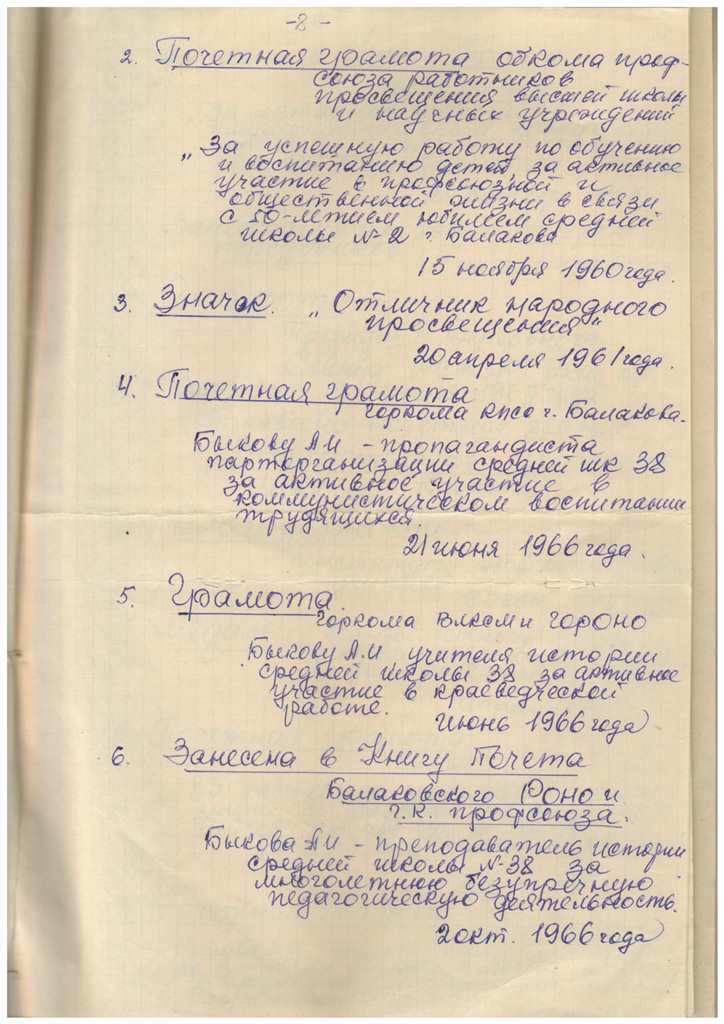 -2-
2. Почетная грамота обкома проф-
союза работников
просвещения высшей школы
и научных учреждений
„За успешную работу по обучению
и воспитанию детей, за активное
участие в профсоюзной и
общественной жизни в связи
с 50-летием юбилеем средней
школы №2 г. Балакова
15 ноября 1960 года.
3. Значок. „Отличник народного
просвещения"
20 апреля 1961 года.
4. Почетная грамота
горкома КПСС г. Балакова.
Быкову АИ - пропагандиста
парторганизации средней шк 38
за активное участие в
коммунистическом воспитании
трудящихся.
21 июня 1966 года.
5. Грамота
горкома ВЛКСМ и ГОРОНО
Быкову А.И учителя истории
средней школы 38 за активное
участие в краеведческой
работе.
Июнь 1966 года
6. Занесена в Книгу Почета
Балаковского Роно и
г.к. профсоюза.
Быкова АИ - преподаватель истории
средней школы №38 за
многолетнюю безупречную
педагогическую деятельность.
2 окт. 1966 года